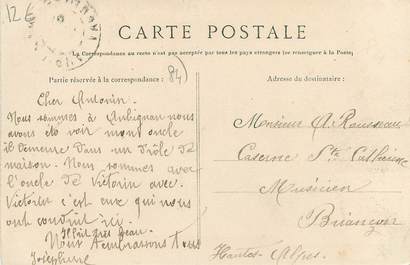 12€
CARTE POSTALE
La Correspondance au recto n'est pas acceptée par tous les pays étrangers (se renseigner à la Poste)
Partie réservée à la correspondance:
84
Adresse du destinataire:
Cher Antonin.
Nous sommes à Aubignan nous
avons été voir mont oncle
il demeure dans un drôle de
maison. Nous sommes avec
l'oncle de Victorin avec.
Victorin c'est eux qui nous
ont conduit ici.
il fait très beau.
Nous t'embrassons tous
Joséphine
Monsieur A. Rousseau
Caserne Ste Catherine
Musicien
Briançon
Hautes-Alpes.